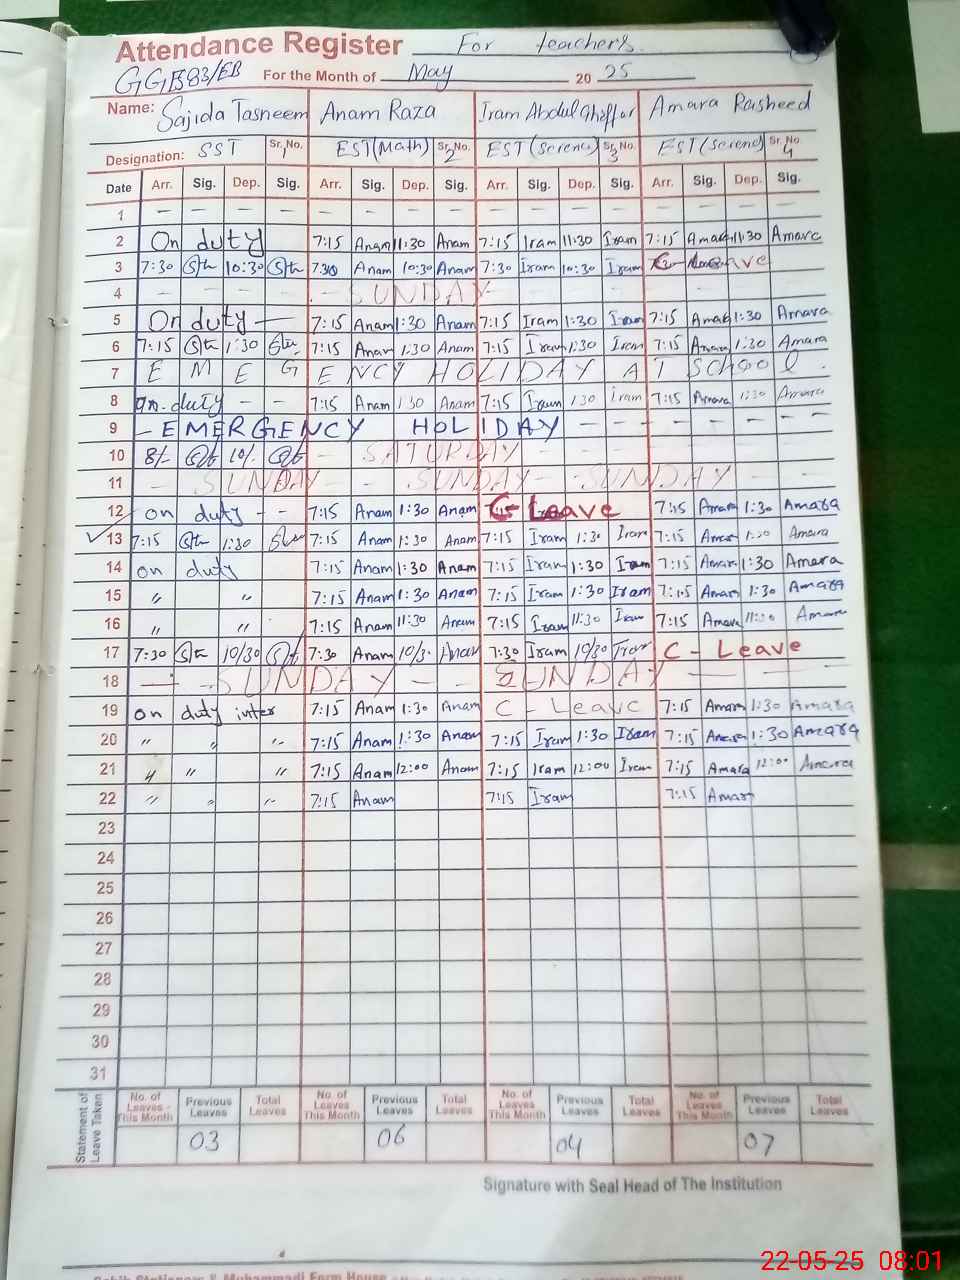 Attendance Register For teachers.
GGES 83/EB For the Month of May 20 25
Name: Sajida Tasneem Anam Raza Iram Abdul Ghaffar Amara Rasheed
Designation: SST Sr. No. 1 EST (Math) Sr. No. 2 EST (Science) Sr. No. 3 EST (Science) Sr. No. 4
Date Arr. Sig. Dep. Sig. Arr. Sig. Dep. Sig. Arr. Sig. Dep. Sig. Arr. Sig. Dep. Sig.
1 — — — — — — — — — — — — — — — —
2 On duty 7:15 Anam 11:30 Anam 7:15 Iram 11:30 Iram 7:15 Amara 11:30 Amara
3 7:30 10:30 7:30 Anam 10:30 Anam 7:30 Iram 10:30 Iram C- Leave
4 — — — — — SUNDAY — — — — — —
5 On duty — 7:15 Anam 1:30 Anam 7:15 Iram 1:30 Iram 7:15 Amara 1:30 Amara
6 7:15 1:30 7:15 Anam 1:30 Anam 7:15 Iram 1:30 Iram 7:15 Amara 1:30 Amara
7 E M E G ENCY HOLIDAY AT SCHOOL.
8 on. duty — — 7:15 Anam 1:30 Anam 7:15 Iram 1:30 Iram 7:15 Amara 1:30 Amara
9 — EMERGENCY HOLIDAY — — — — — —
10 8/- 10/- — SATURDAY — — — — — —
11 — SUNDAY — SUNDAY — SUNDAY — —
12 on duty - - 7:15 Anam 1:30 Anam C- Leave 7:15 Amara 1:30 Amara
13 7:15 1:30 7:15 Anam 1:30 Anam 7:15 Iram 1:30 Iram 7:15 Amara 1:30 Amara
14 on duty 7:15 Anam 1:30 Anam 7:15 Iram 1:30 Iram 7:15 Amara 1:30 Amara
15 " " 7:15 Anam 1:30 Anam 7:15 Iram 1:30 Iram 7:15 Amara 1:30 Amara
16 " " 7:15 Anam 11:30 Anam 7:15 Iram 11:30 Iram 7:15 Amara 11:30 Amara
17 7:30 10/30 7:30 Anam 10/30 Anam 7:30 Iram 10/30 Iram C - Leave
18 — - SUNDAY — — SUNDAY — —
19 on duty inter 7:15 Anam 1:30 Anam C - Leave 7:15 Amara 1:30 Amara
20 " " " 7:15 Anam 1:30 Anam 7:15 Iram 1:30 Iram 7:15 Amara 1:30 Amara
21 " " " 7:15 Anam 12:00 Anam 7:15 Iram 12:00 Iram 7:15 Amara 12:00 Amara
22 " " " 7:15 Anam 7:15 Iram 7:15 Amara
23
24
25
26
27
28
29
30
31
Statement of Leave Taken No. of Leaves - This Month Previous Leaves Total Leaves No. of Leaves This Month Previous Leaves Total Leaves No. of Leaves This Month Previous Leaves Total Leaves No. of Leaves This Month Previous Leaves Total Leaves
03 06 04 07
Signature with Seal Head of The Institution
22-05-25 08:01